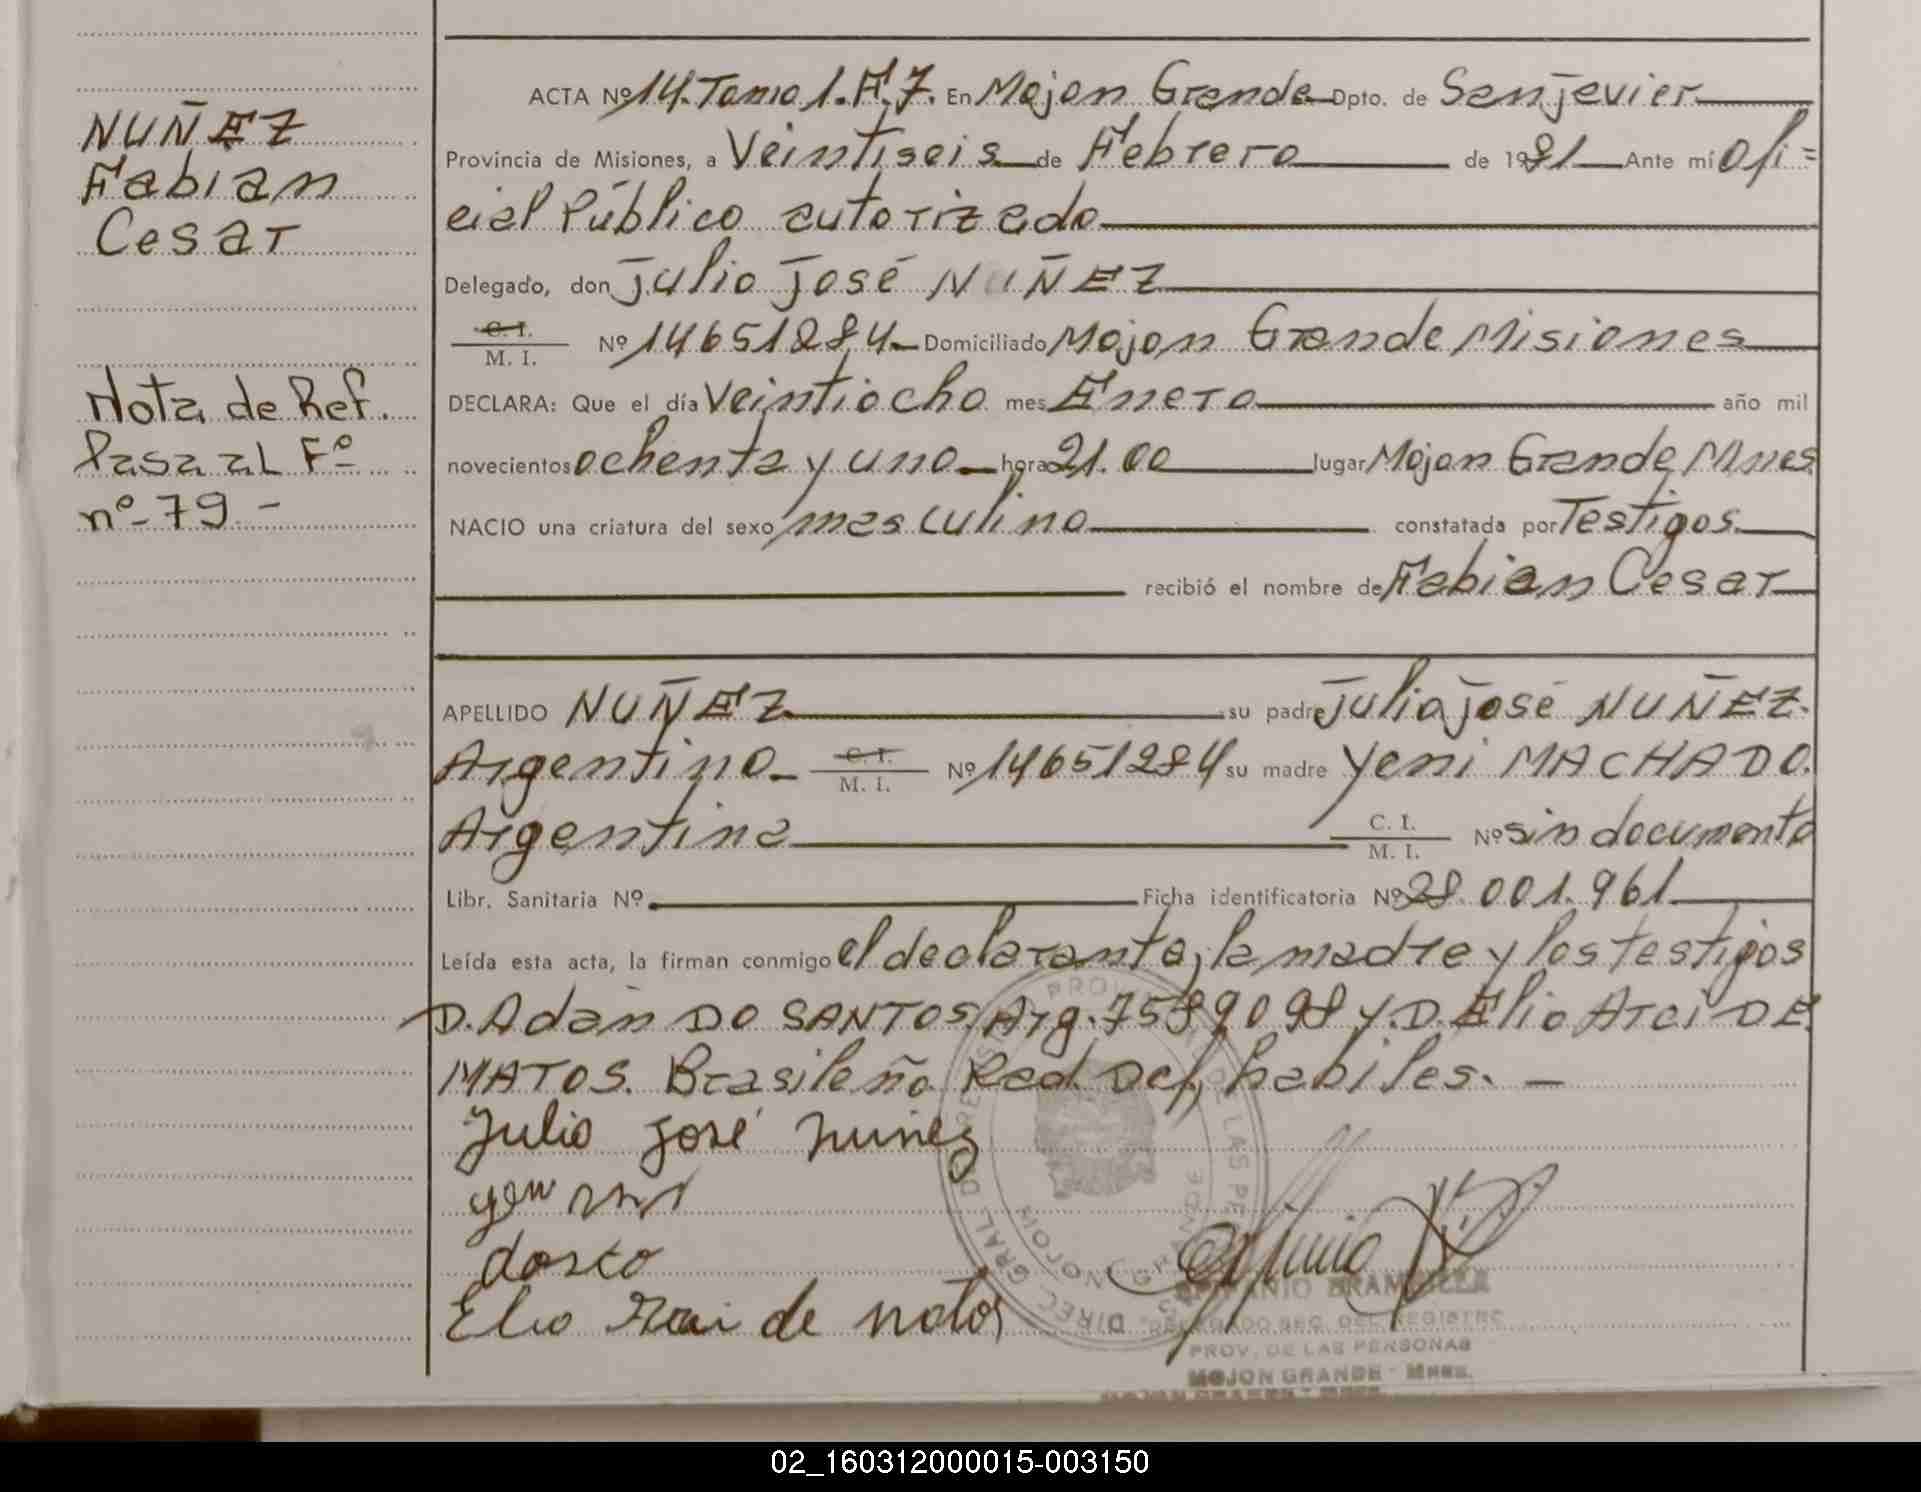 NUÑEZ
Fabian
Cesar
Nota de Ref.
Pasa al Fº
nº-79-
ACTA Nº 14. Tomo 1. F. 7. En Mojon Grande Dpto. de San Javier
Provincia de Misiones, a Veintiseis de Febrero de 1981 Ante mí Ofi=
cial Público autorizado
Delegado, don Julio José NUÑEZ
C. I.
M. I. Nº 14651284 Domiciliado Mojon Grande Misiones
DECLARA: Que el día Veintiocho mes Enero año mil
novecientos ochenta y uno hora 21.00 lugar Mojon Grande, Mnes
NACIO una criatura del sexo masculino constatada por Testigos.
recibió el nombre de Fabian Cesar
APELLIDO NUÑEZ su padre Julio José NUÑEZ.
Argentino C. I.
M. I. Nº 14651284 su madre Yeni MACHADO.
Argentina C. I.
M. I. Nº sin documento
Libr. Sanitaria Nº Ficha identificatoria Nº 28.001.961
Leída esta acta, la firman conmigo el declarante, la madre y los testigos
D. Adan DO SANTOS, Arg. 7589098 y D. Elio Arci DE
MATOS. Brasileño Rad. Def, habiles. —
Julio José nuñez
Elio de
BRAMBILLA
DELEGADO REG. DEL REGISTRO
PROV. DE LAS PERSONAS
MOJON GRANDE - Mnes.
02_160312000015-003150